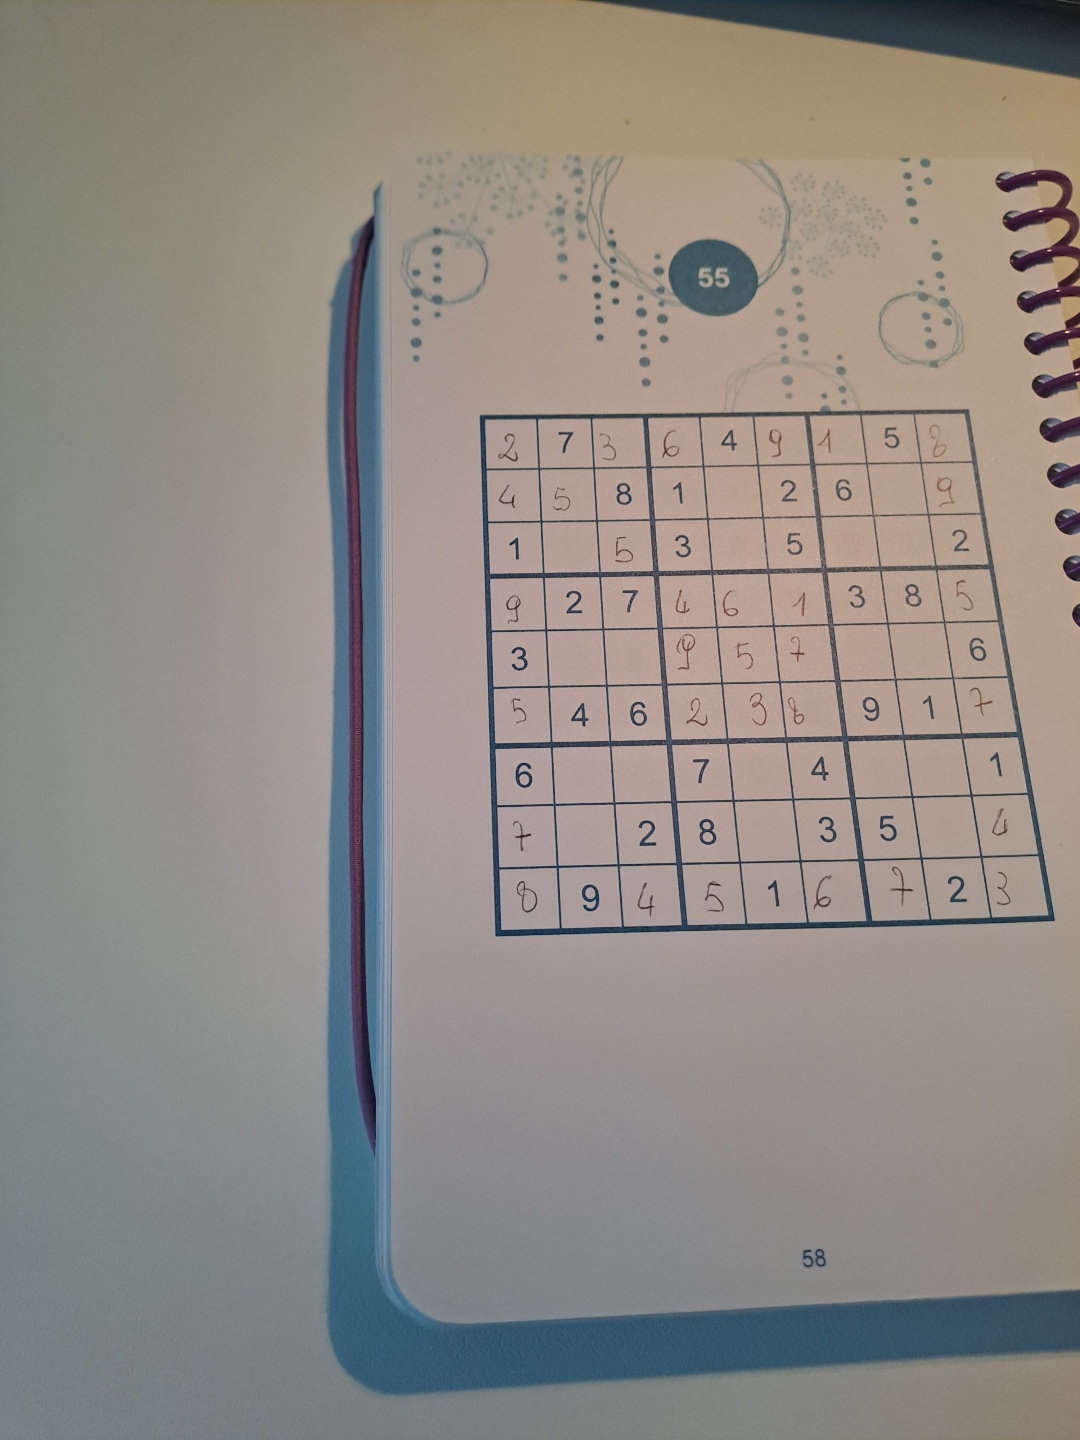 55
2 7 3 6 4 9 1 5 8
4 5 8 1 2 6 9
1 5 3 5 2
9 2 7 4 6 1 3 8 5
3 9 5 7 6
5 4 6 2 3 8 9 1 7
6 7 4 1
7 2 8 3 5 4
8 9 4 5 1 6 7 2 3
58